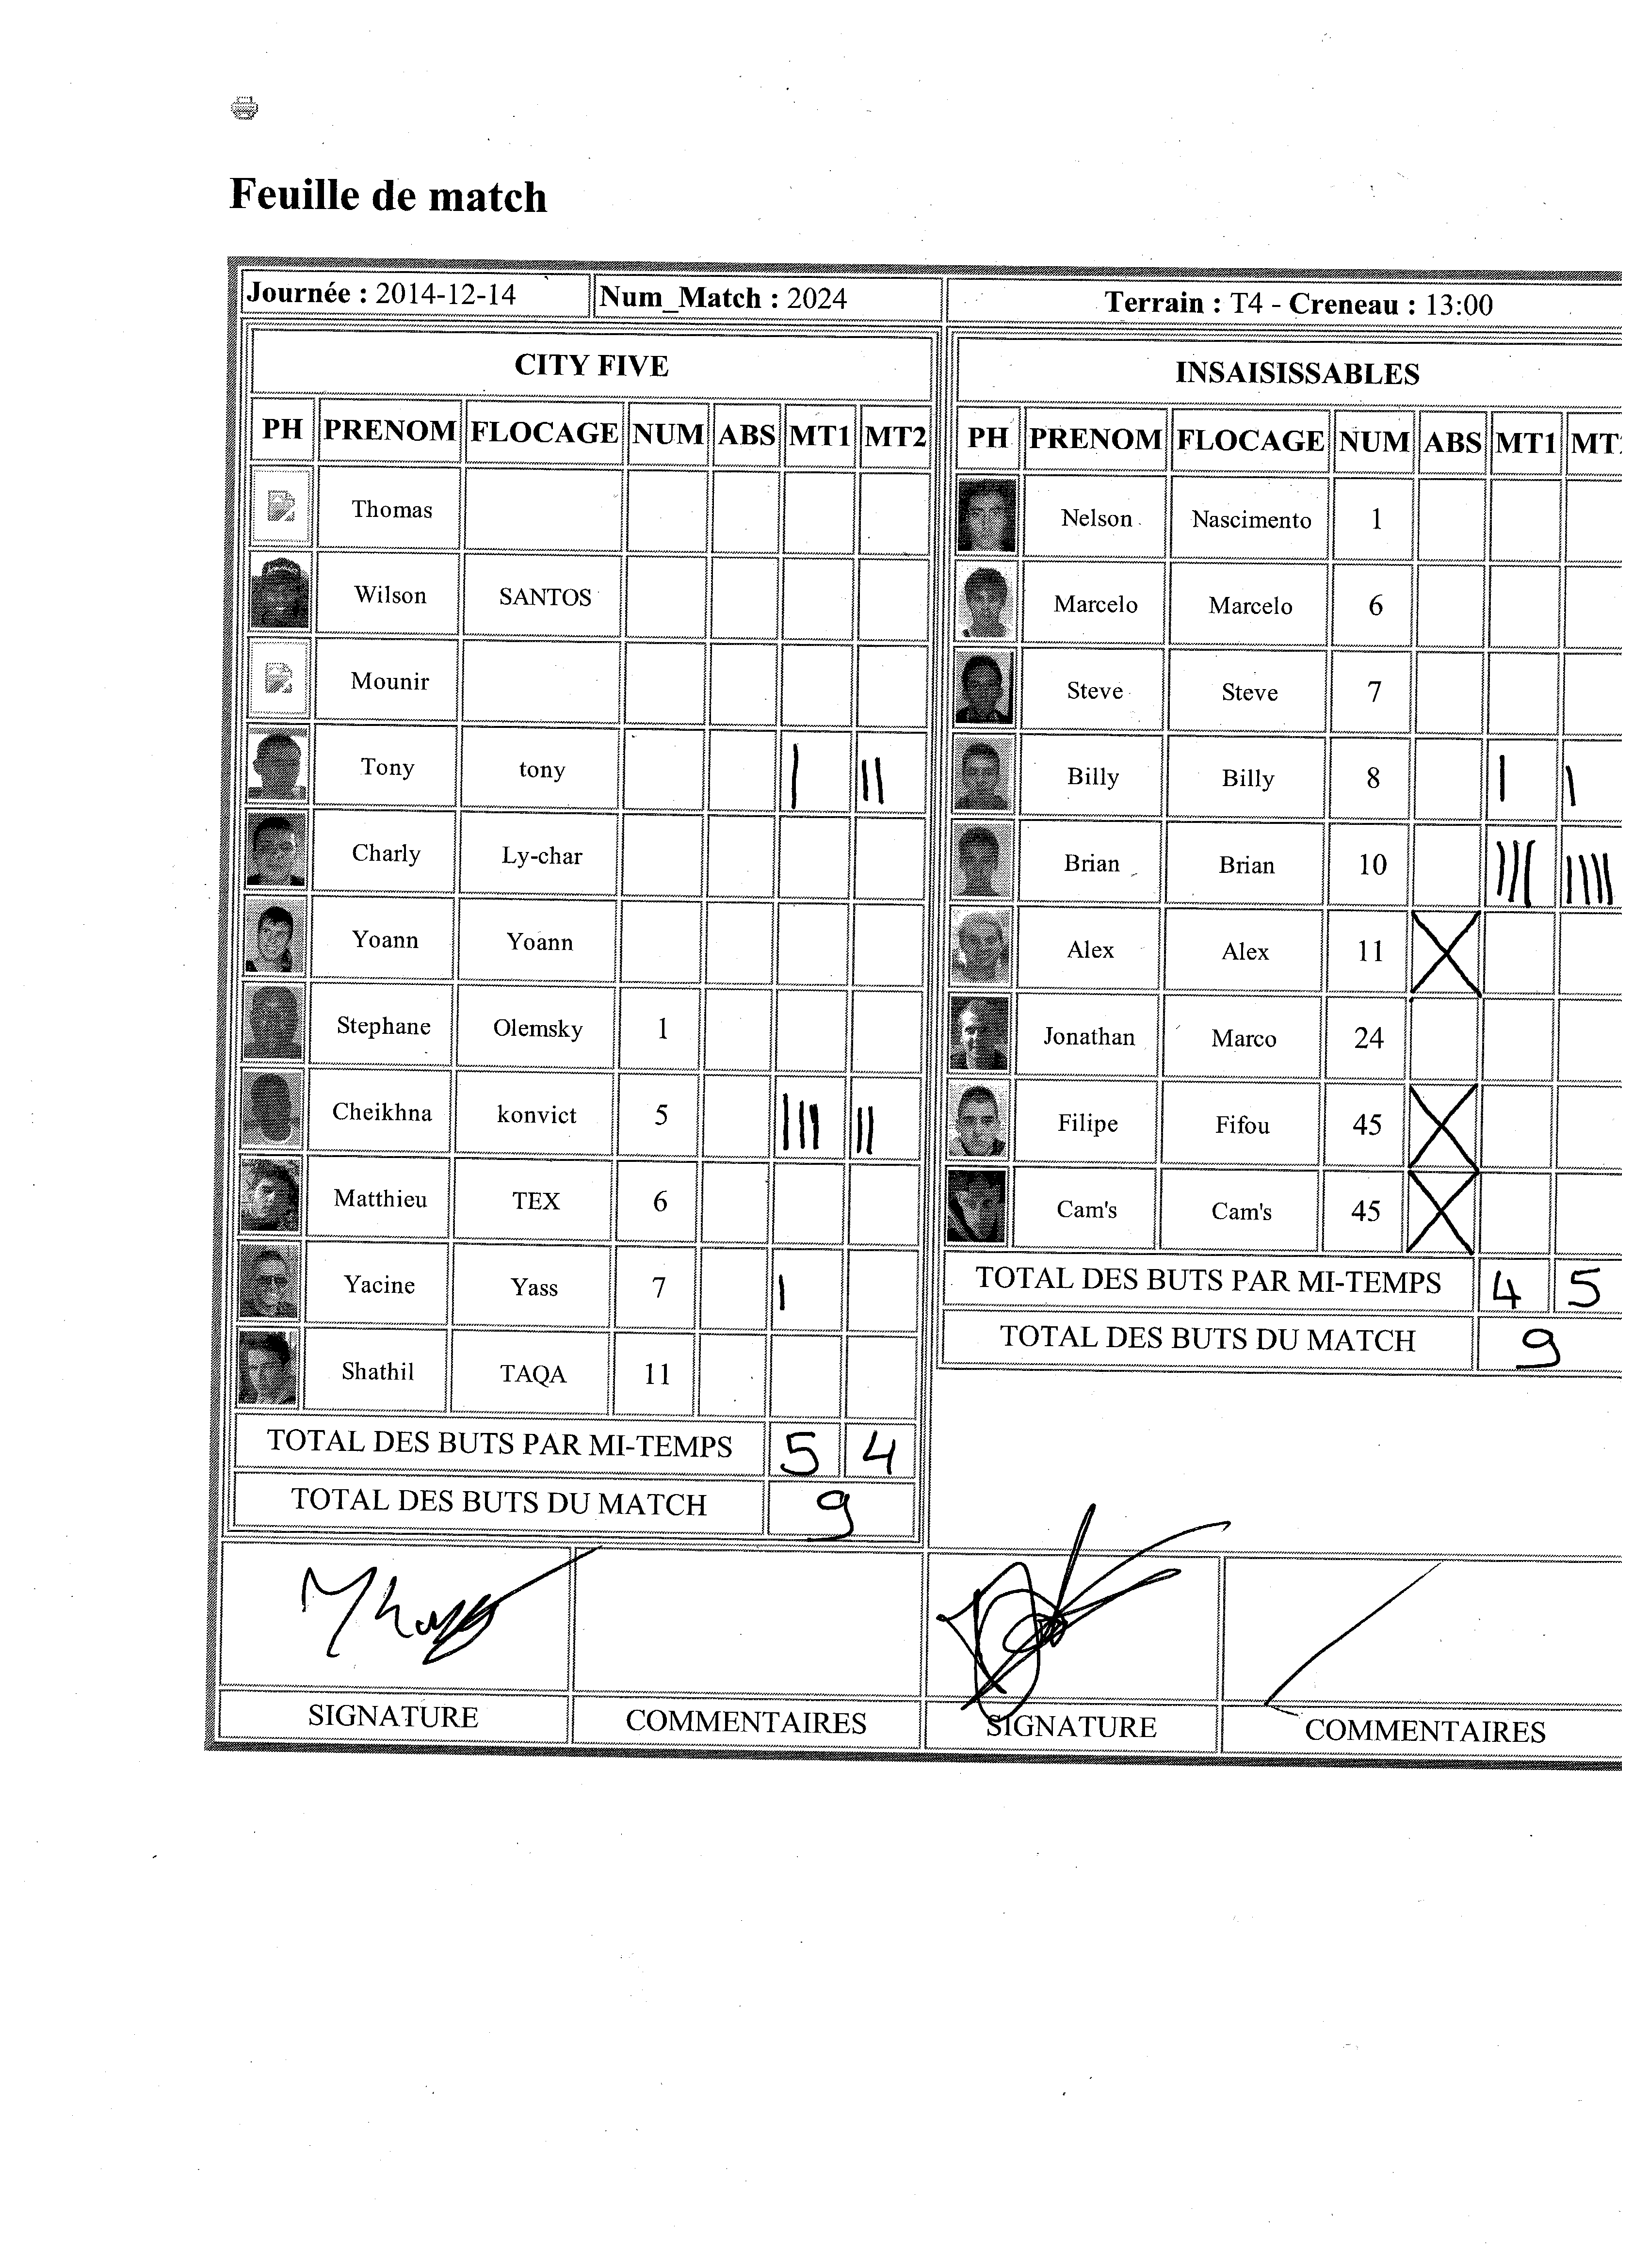 Feuille de match
Journée : 2014-12-14 Num_Match : 2024 Terrain : T4 - Creneau : 13:00
CITY FIVE
PH PRENOM FLOCAGE NUM ABS MT1 MT2
Thomas
Wilson SANTOS
Mounir
Tony tony | ||
Charly Ly-char
Yoann Yoann
Stephane Olemsky 1
Cheikhna konvict 5 ||| ||
Matthieu TEX 6
Yacine Yass 7 |
Shathil TAQA 11
TOTAL DES BUTS PAR MI-TEMPS 5 4
TOTAL DES BUTS DU MATCH 9
SIGNATURE COMMENTAIRES
INSAISISSABLES
PH PRENOM FLOCAGE NUM ABS MT1 MT
Nelson Nascimento 1
Marcelo Marcelo 6
Steve Steve 7
Billy Billy 8 | |
Brian Brian 10 ||| ||||
Alex Alex 11 X
Jonathan Marco 24
Filipe Fifou 45 X
Cam's Cam's 45 X
TOTAL DES BUTS PAR MI-TEMPS 4 5
TOTAL DES BUTS DU MATCH 9
SIGNATURE COMMENTAIRES